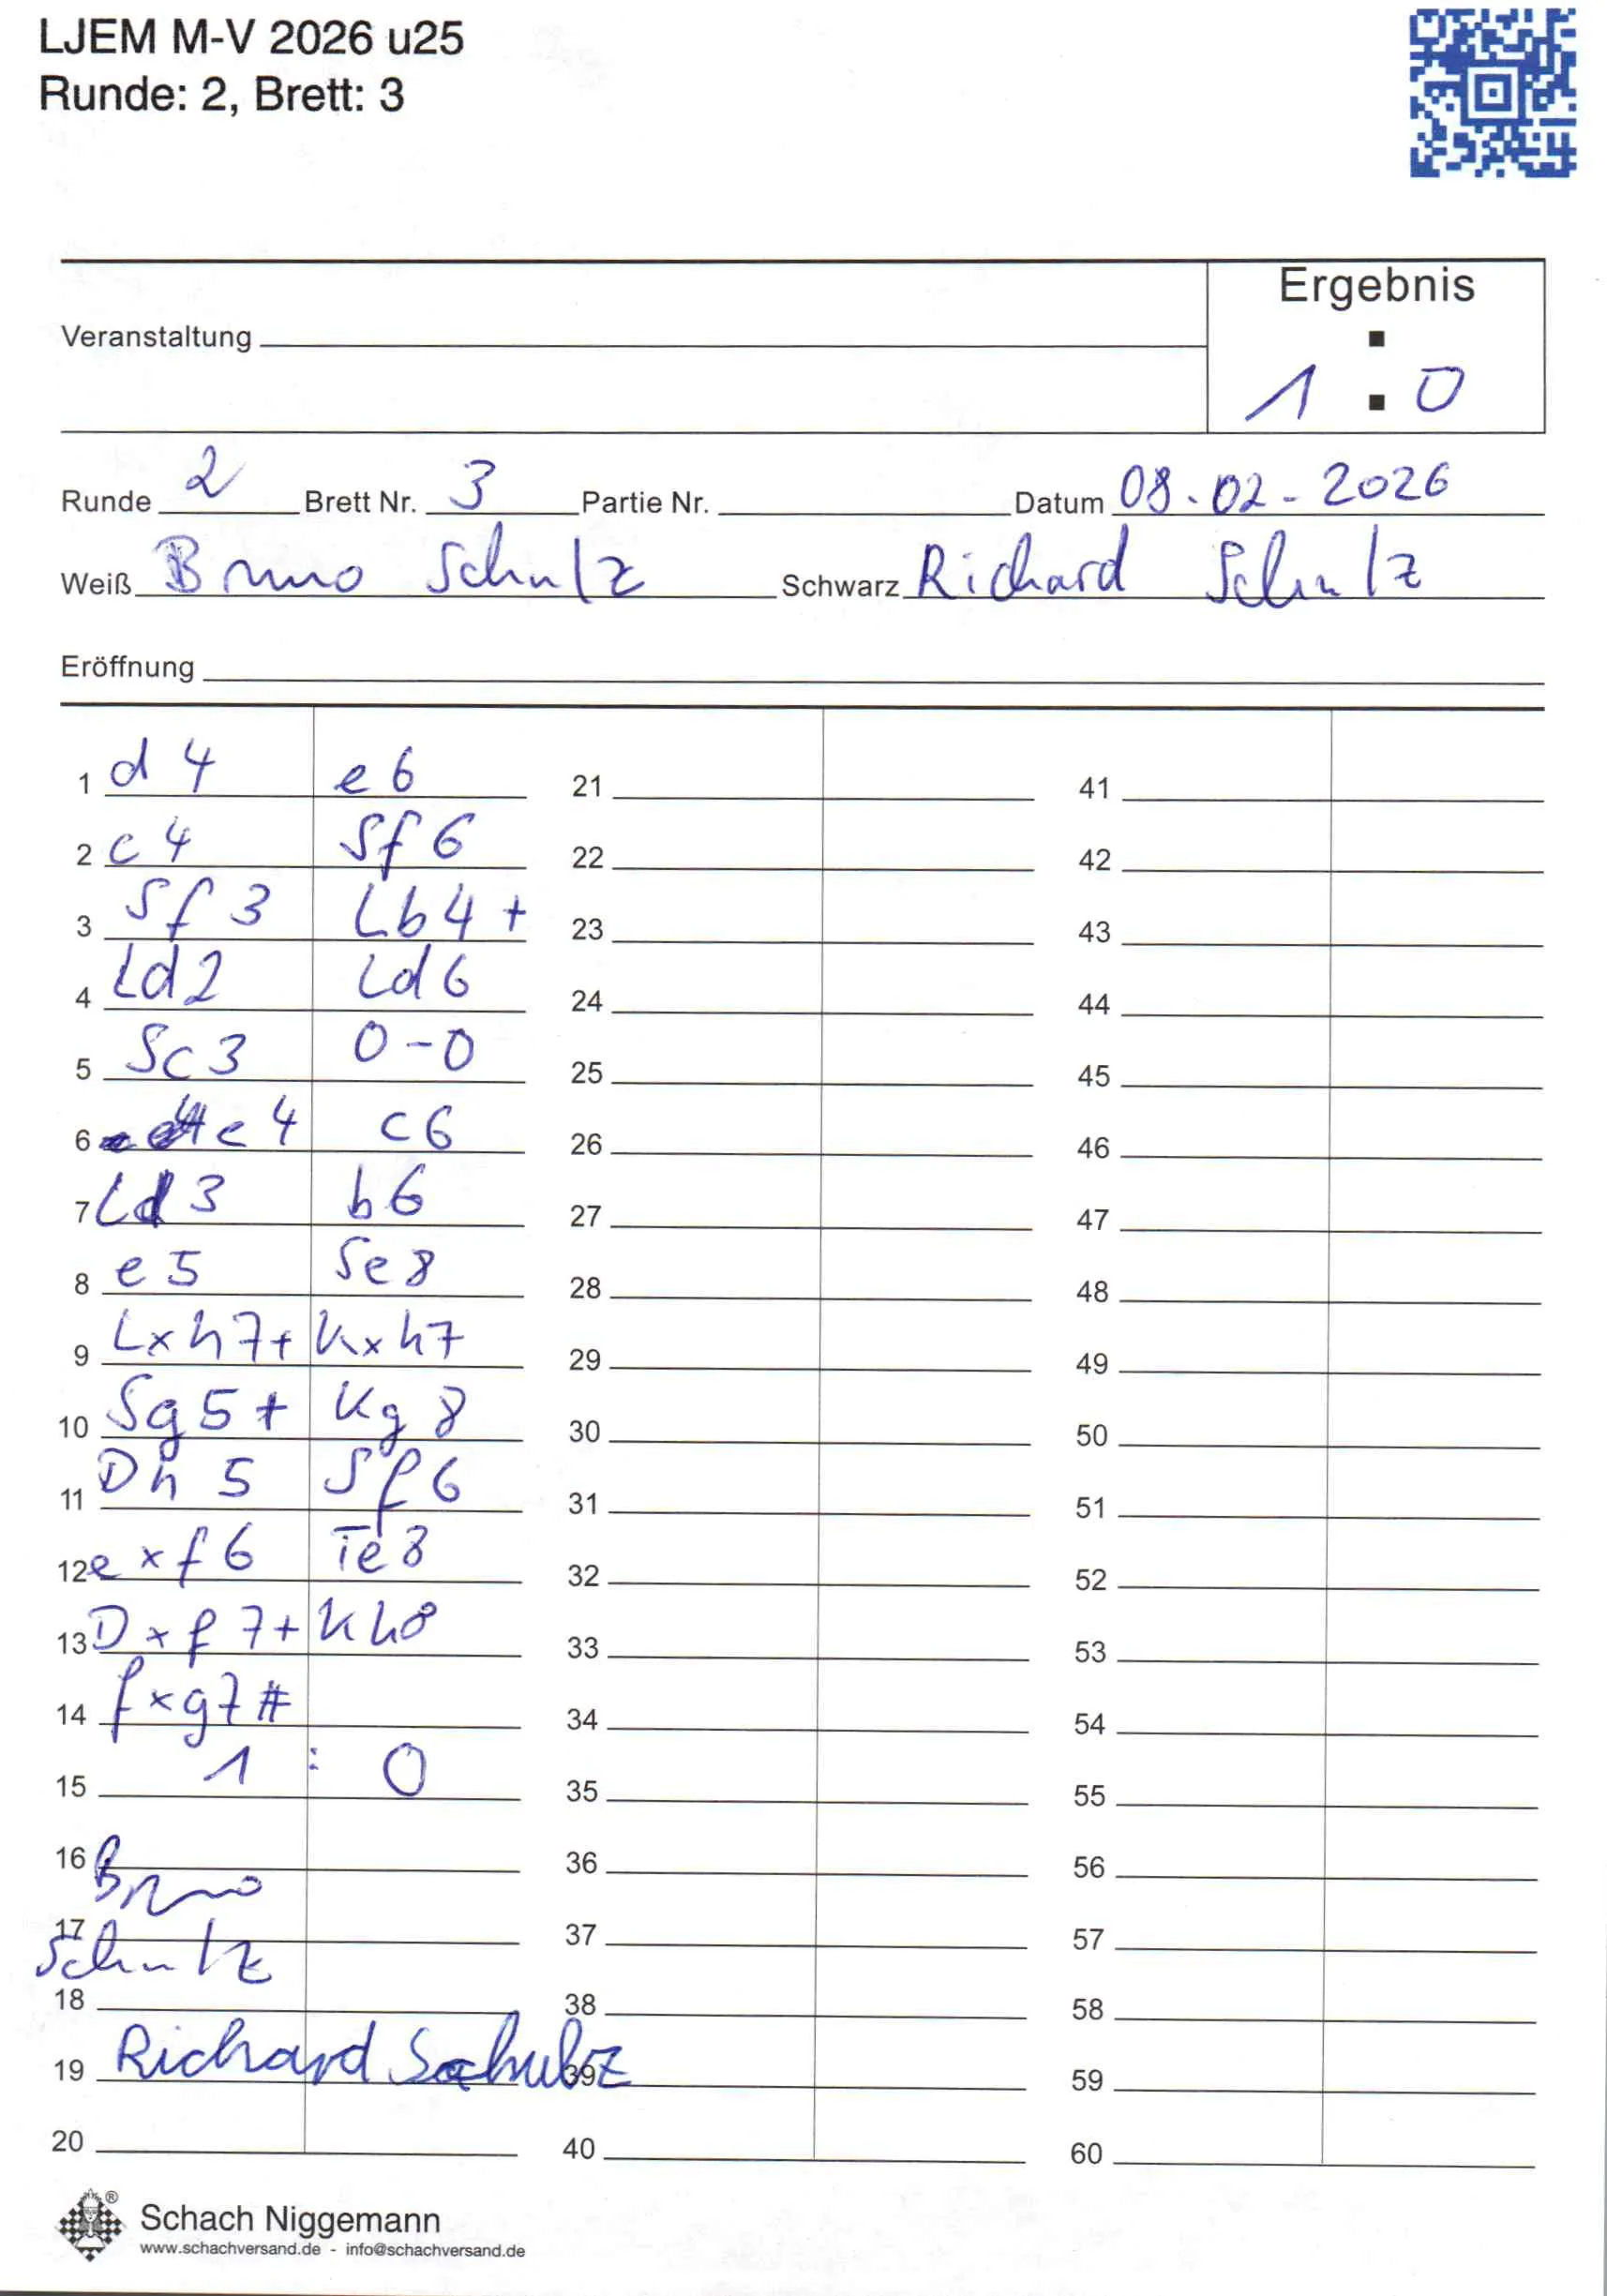 LJEM M-V 2026 u25
Runde: 2, Brett: 3
Ergebnis
Veranstaltung
1 : 0
Runde 2 Brett Nr. 3 Partie Nr. Datum 08.02-2026
Weiß Bruno Schulz Schwarz Richard Schulz
Eröffnung
1 d4 e6 21 41
2 c4 Sf6 22 42
3 Sf3 Lb4+ 23 43
4 Ld2 Ld6 24 44
5 Sc3 0-0 25 45
6 e4 c6 26 46
7 Ld3 b6 27 47
8 e5 Se8 28 48
9 Lxh7+ Kxh7 29 49
10 Sg5+ Kg8 30 50
11 Dh5 Sf6 31 51
12 exf6 Te8 32 52
13 Dxf7+ Kh8 33 53
14 fxg7# 34 54
15 1 : 0 35 55
16 Bruno 36 56
17 Schulz 37 57
18 38 58
19 Richard Schulz 39 59
20 40 60
®
Schach Niggemann
www.schachversand.de - info@schachversand.de